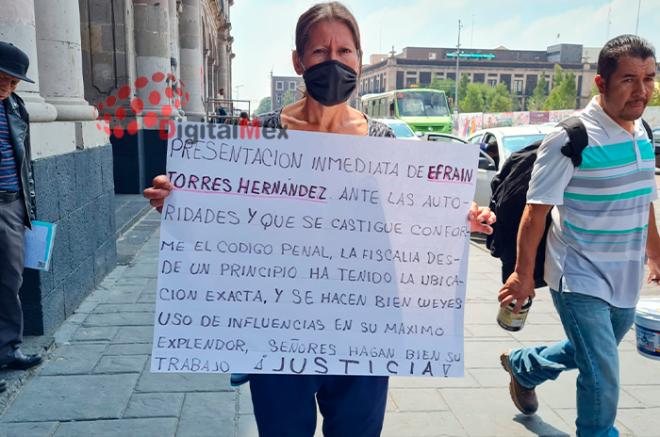 DigitalMex
PRESENTACION INMEDIATA DE EFRAIN
TORRES HERNÁNDEZ. ANTE LAS AUTO-
RIDADES Y QUE SE CASTIGUE CONFOR-
ME EL CODIGO PENAL, LA FISCALIA DES-
DE UN PRINCIPIO HA TENIDO LA UBICA-
CION EXACTA, Y SE HACEN BIEN WEYES
USO DE INFLUENCIAS EN SU MÁXIMO
EXPLENDOR, SEÑORES HAGAN BIEN SU
TRABAJO ¡JUSTICIA!